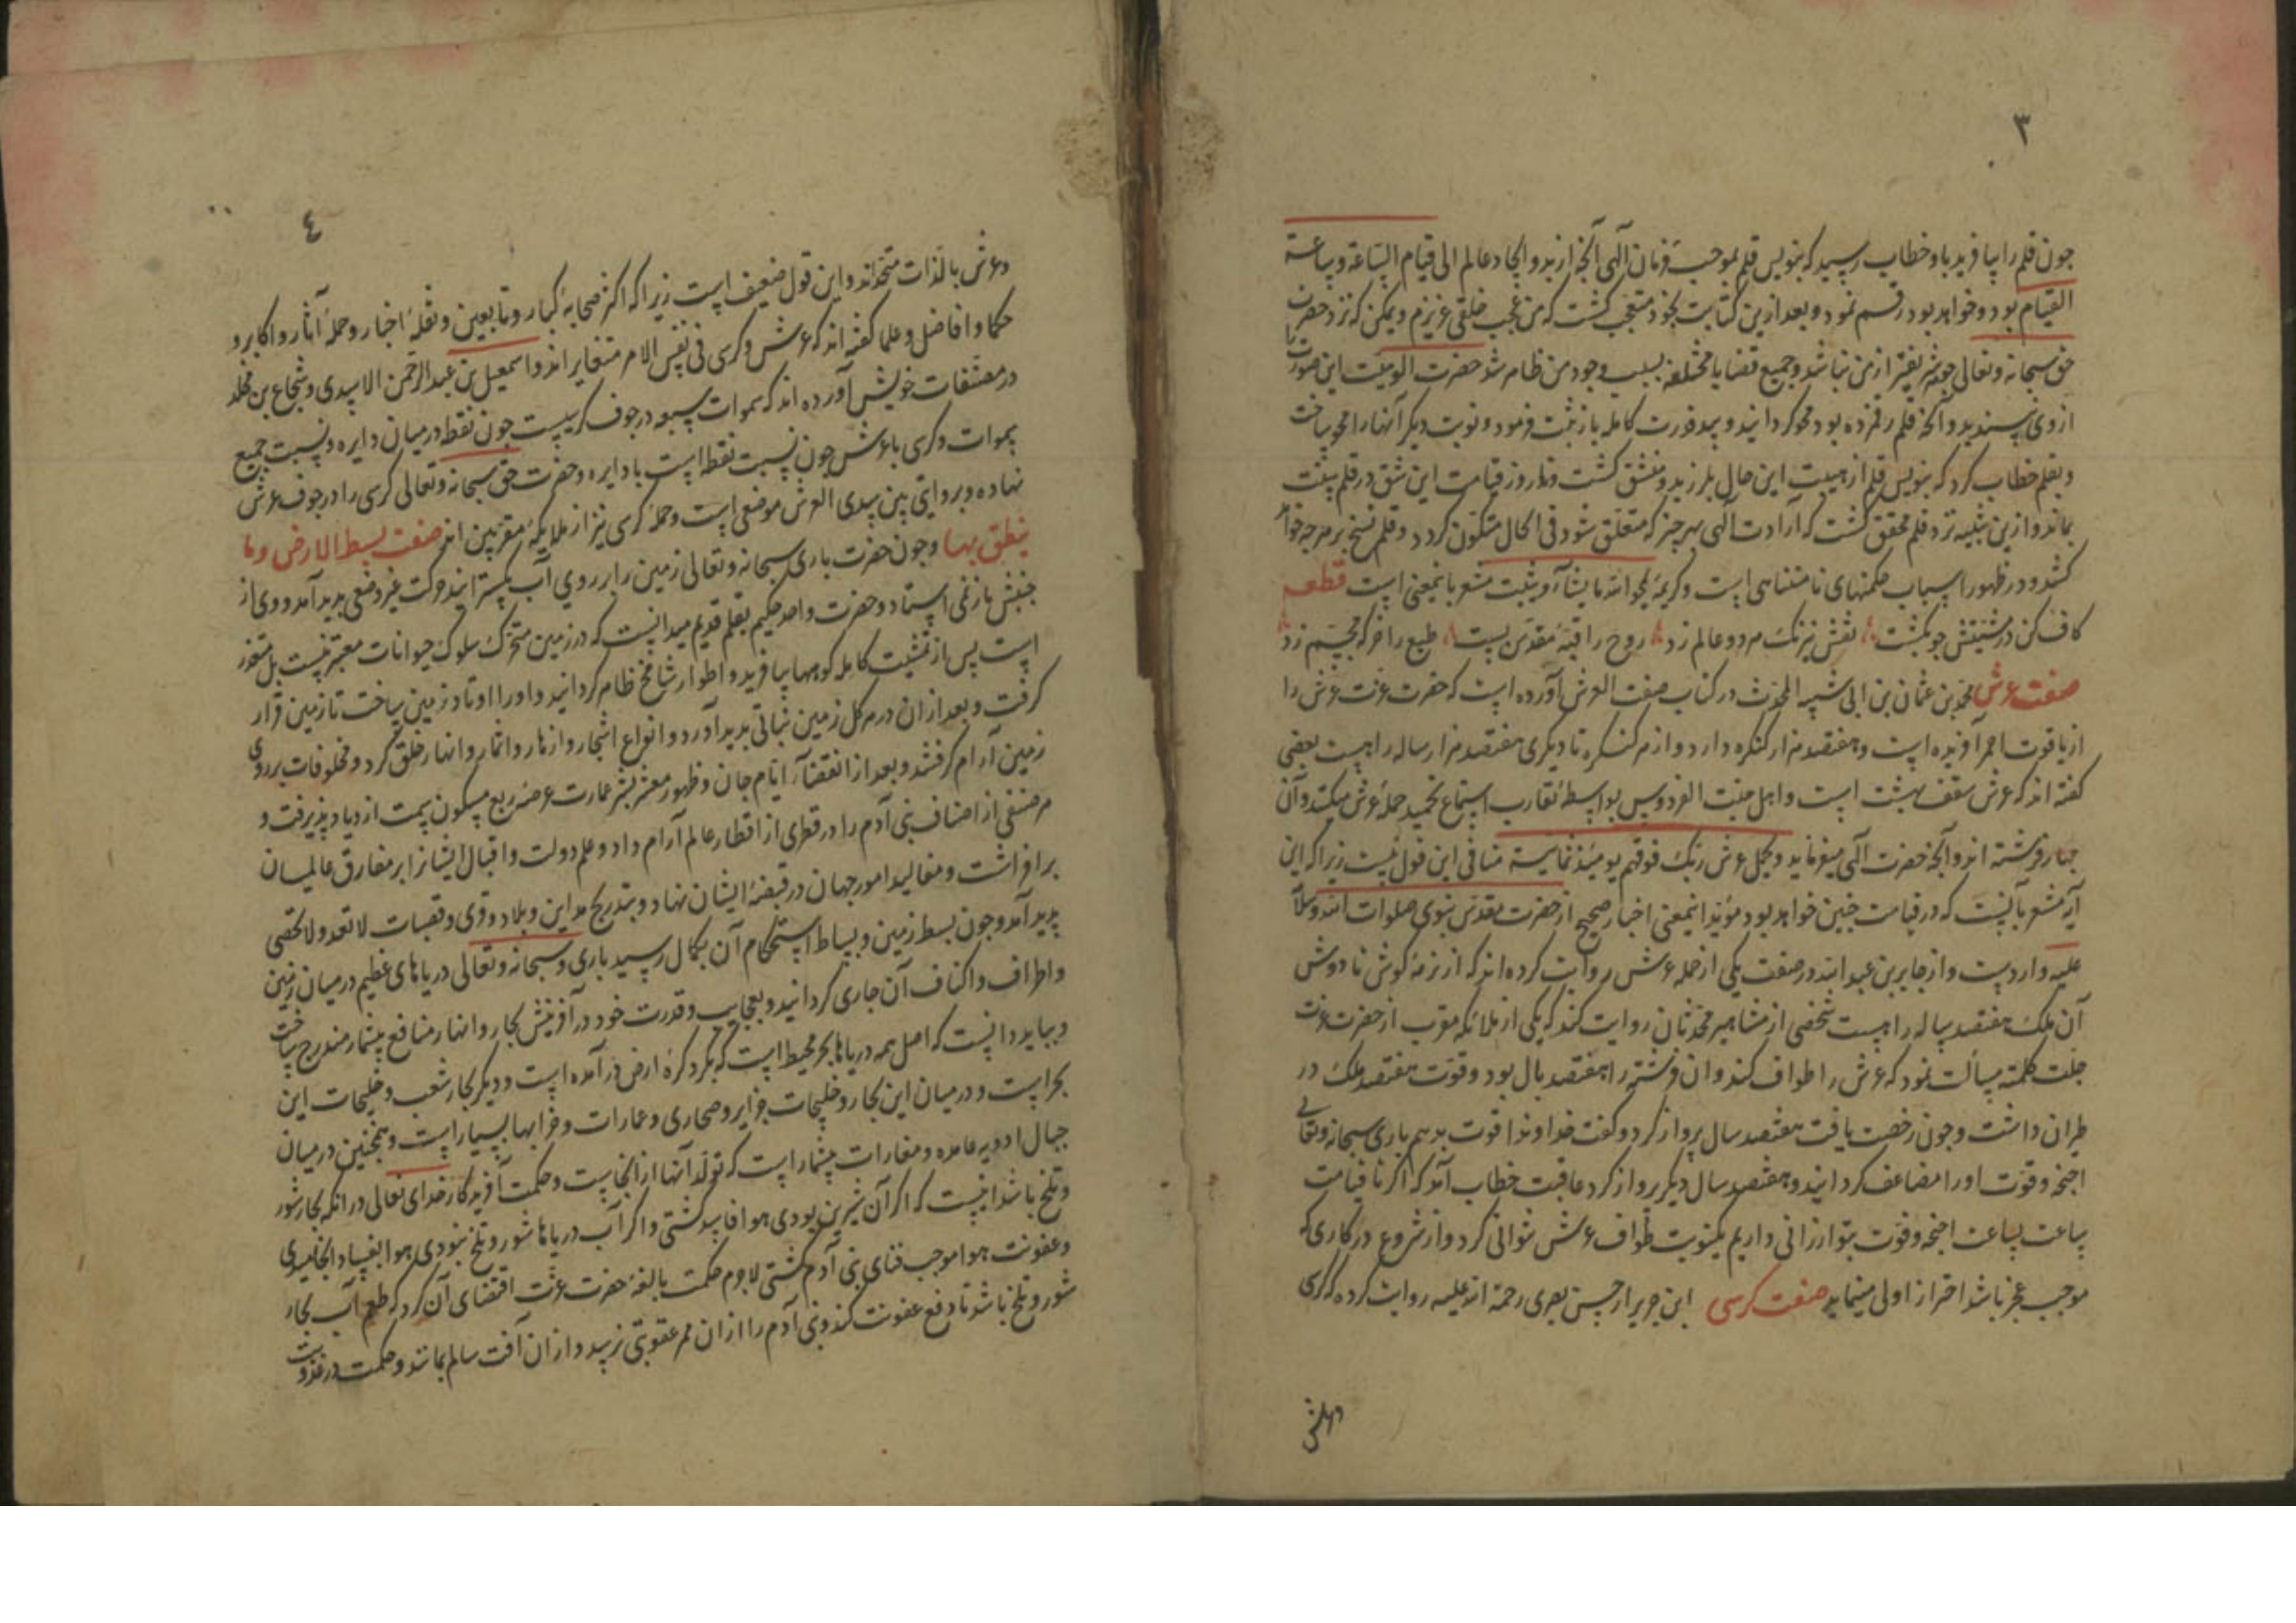 ۳
چون قلم را بیافرید باو خطاب رسید که بنویس قلم بموجب فرمان الهی آنچه از بدو ایجاد عالم الی قیام الساعة و ساعة
القیام بود و خواهد بود رقم نمود و بعد ازین کتابت بخود متعجب کشت که من عجب خلقی عزیزم و یمکن که نزد حضرت
حق سبحانه و تعالی هیچ شریفتر از من نباشد و جمیع قضایا مختلفه بسبب وجود من ظاهر شد حضرت الوهیت این صورت را
از وی نپسندید و آنچه قلم رقم زده بود محو کردانید و بید قدرت کامله باز ثبت فرمود و نوبت دیگر آنها را محو ساخت
و بقلم خطاب کرد که بنویس قلم از هیبت این حال بلرزید و منشق کشت و تا روز قیامت این شق در قلم بینت
بماند و ازین تنبیه نزد قلم محقق کشت که ارادت الهی بهر چیز که متعلق شود فی الحال متکون کردد و قلم نسخ بر هر چه خواهد
کشد و در ظهور اسباب حکمتهای نامتناهی است و کریمهٔ یمحو الله ما یشآء و یثبت مشعر باینمعنی است قطعه
کاف کن در مشیتش چو بکشت نقش نیرنک هر دو عالم زد روح را قبهٔ مقدس بست طبع را خرکه مجسم زد
صفت عرش محمد بن عثمان بن ابی شیبه المحدث در کتاب صفت العرش آورده است که حضرت عزت عرش را
از یاقوت احمر آفریده است و هفتصد هزار کنکره دارد و از هر کنکره تا دیکری هفتصد هزار ساله راهست بعضی
کفته اند که عرش سقف بهشت است و اهل جنت الفردوس بواسطهٔ تقارب استماع تحمید حملهٔ عرش میکنند و آن
چهار فرشته اند و آنچه حضرت الهی میفرماید و یحمل عرش ربک فوقهم یومئذ ثمانیة منافی این قول نیست زیرا که این
آیه مشعر بآنست که در قیامت چنین خواهد بود مؤید اینمعنی اخبار صحیح از حضرت مقدس نبوی صلوات الله و سلامه
علیه واردست و از جابر بن عبد الله در صفت یکی از حملهٔ عرش روایت کرده اند که از نرمهٔ کوش تا دوش
آن ملک هفتصد ساله راهست شخصی از مشاهیر محدثان روایت کند که یکی از ملائکهٔ مقرب از حضرت عزت
جلت کلمته مسألت نمود که عرش را طواف کند و ان فرشته را هفتصد بال بود و قوت هفتصد ملک در
طیران داشت و چون رخصت یافت هفتصد سال پرواز کرد و کفت خداوندا قوت بدهم باری سبحانه و تعالی
اجنحه و قوت او را مضاعف کردانید و هفتصد سال دیکر پرواز کرد عاقبت خطاب آمد که اکر تا قیامت
ساعت بساعت اجنحه و قوت بتو ارزانی داریم یکنوبت طواف عرش نتوانی کرد و از شروع در کاری که
موجب عجز باشد احتراز اولی مینماید صفت کرسی ابن جریر از حسن بصری رحمة الله علیه روایت کرده که کرسی
و عرش
٤
و عرش بالذات متحداند و این قول ضعیف است زیرا که اکثر صحابهٔ کبار و تابعین و نقلهٔ اخبار و حملهٔ آثار و اکابر و
حکما و افاضل و علما کفته اند که عرش و کرسی فی نفس الامر متغایر اند و اسمعیل بن عبد الرحمن الاسدی و شجاع بن مخلد
در مصنفات خویش آورده اند که سموات سبعه در جوف کرسیست چون نقطه در میان دایره و نسبت جمیع
سموات و کرسی با عرش چون نسبت نقطه است با دایره و حضرت حق سبحانه و تعالی کرسی را در جوف عرش
نهاده و بروایتی بین یدی العرش موضعی است و حملهٔ کرسی نیز از ملایکهٔ مقربین اند صفت بسط الارض و ما
ینطق بها و چون حضرت باری سبحانه و تعالی زمین را بر روی آب بکسترانید حرکت غیر وضعی پدید آمد و وی از
جنبش باز نمی استاد و حضرت واحد حکیم بعلم قدیم میدانست که در زمین متحرک سلوک حیوانات معتبر نیست بل متعذر
است پس از مشیت کامله کوهها بیافرید و اطوار شامخ ظاهر کردانید و او را اوتاد زمین ساخت تا زمین قرار
کرفت و بعد ازان در هر کل زمین نباتی پدید آورد و انواع اشجار و ازهار و اثمار و انهار خلق کرد و مخلوقات بر روی
زمین آرام کرفتند و بعد از انقضآء ایام جان و ظهور معشر بشر عمارت عرصهٔ ربع مسکون سمت ازدیاد پذیرفت و
هر صنفی از اصناف بنی آدم را در قطری از اقطار عالم آرام داد و علم دولت و اقبال ایشانرا بر مفارق عالمیان
برافراشت و مقالید امور جهان در قبضهٔ ایشان نهاد و بتدریج مداین و بلاد و قری و قصبات لا تعد و لا تحصی
پدید آمد و چون بسط زمین و بساط استحکام آن بکمال رسید باری و سبحانه و تعالی دریاهای عظیم در میان زمین
و اطراف و اکناف آن جاری کردانید و بعجایب و قدرت خود در آفرینش بحار و انهار منافع بیشمار مندرج ساخت
و بباید دانست که اصل همه دریاها بحر محیط است که بکرد کرهٔ ارض در آمده است و دیکر بحار شعب و خلیجات این
بحراست و در میان این بحار و خلیجات جزایر و صحاری و عمارات و خرابها بسیار است و همچنین در میان
جبال اودیه عامره و مغارات بیشمار است که تولد آنها از انجاست و حکمت آفریدکار خدای تعالی در انکه بحار شور
و تلخ باشد اینست که اکر آن شیرین بودی هوا فاسد کشتی و اکر آب دریاها شور و تلخ نبودی هوا بفساد انجامیدی
و عفونت هوا موجب فنای بنی آدم کشتی لاجرم حکمت بالغهٔ حضرت عزت اقتضای آن کرد که طعم آب بحار
شور و تلخ باشد تا دفع عفونت کند و بنی آدم را ازان ممر عقوبتی نرسد و ازان آفت سالم بمانند و حکمت در عذوبت